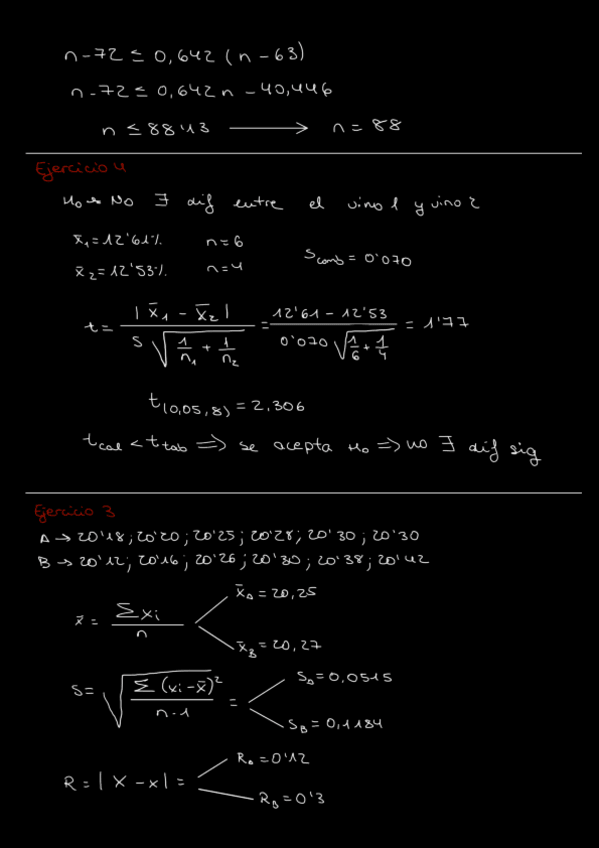 n-72 ≤ 0,642 (n-63)
n-72 ≤ 0,642n - 40,446
n ≤ 88'13 ⟶ n = 88
Ejercicio 4
H₀ → No ∃ dif entre el vino 1 y vino 2
x̄₁ = 12'61% n = 6
x̄₂ = 12'53% n = 4
S comb = 0'070
t = |x̄₁ - x̄₂| / S √(1/n₁ + 1/n₂) = 12'61 - 12'53 / 0'070 √(1/6 + 1/4) = 1'77
t(0,05,8) = 2,306
t cal < t tab ⟹ se acepta H₀ ⟹ no ∃ dif sig
Ejercicio 3
A → 20'18; 20'20; 20'25; 20'28; 20'30; 20'30
B → 20'12; 20'16; 20'26; 20'30; 20'38; 20'42
x̄ = Σxi / n
x̄A = 20,25
x̄B = 20,27
S = √(Σ(xi - x̄)² / n-1) =
SA = 0,0515
SB = 0,1184
R = |X - x| =
RA = 0'12
RB = 0'3